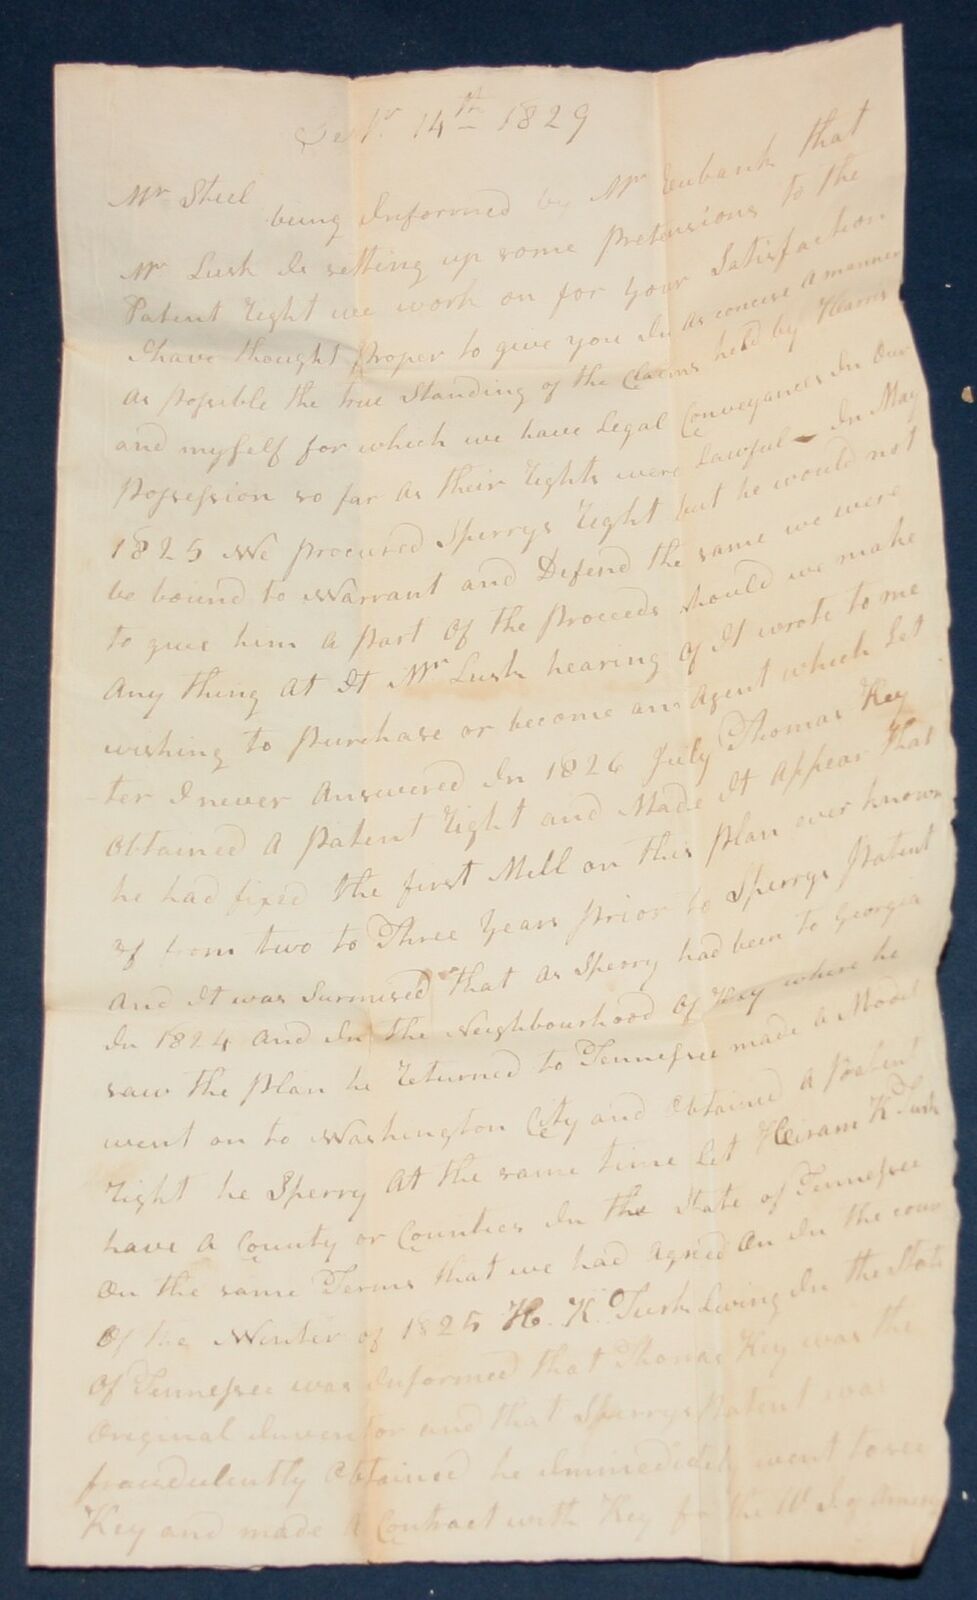 Sept.r 14th 1829
Mr Steel
being Informed by Mr Eubank that
Mr Lusk Is setting up some pretensions to the
Patent Right we work on for your Satisfaction
I have thought proper to give you In as concise a manner
as possible the true Standing of the Claims held by Harris
and myself for which we have Legal Conveyances In Our
possession so far as their Rights were Lawful - In May
1825 We procured Sperrys Right but he would not
be bound to Warrant and Defend the same we were
to give him a part of the proceeds should we make
any thing at It Mr Lusk hearing of It wrote to me
wishing to purchase or become an Agent which Let
ter I never answered In 1826 July Thomas Key
obtained a patent Right and Made It appear that
he had fixed the first Mill on this plan ever known
of from two to Three years prior to Sperrys patent
and It was Surmised that as Sperry had been to Georgia
In 1824 and In the Neighbourhood of Key where he
saw the plan he Returned to Tennessee made a Model
went on to Washington City and obtained a patent
Right he Sperry at the same time Let Hiram K Turk
have a County or Counties In the State of Tennessee
on the same Terms that we had agreed on In the cour
of the Winter of 1825 H. K. Turk Living In the State
of Tennessee was Informed that Thomas Key was the
original Inventor and that Sperrys patent was
fraudulently obtained he Immediately went to see
Key and made a Contract with Key for the U S of Amer